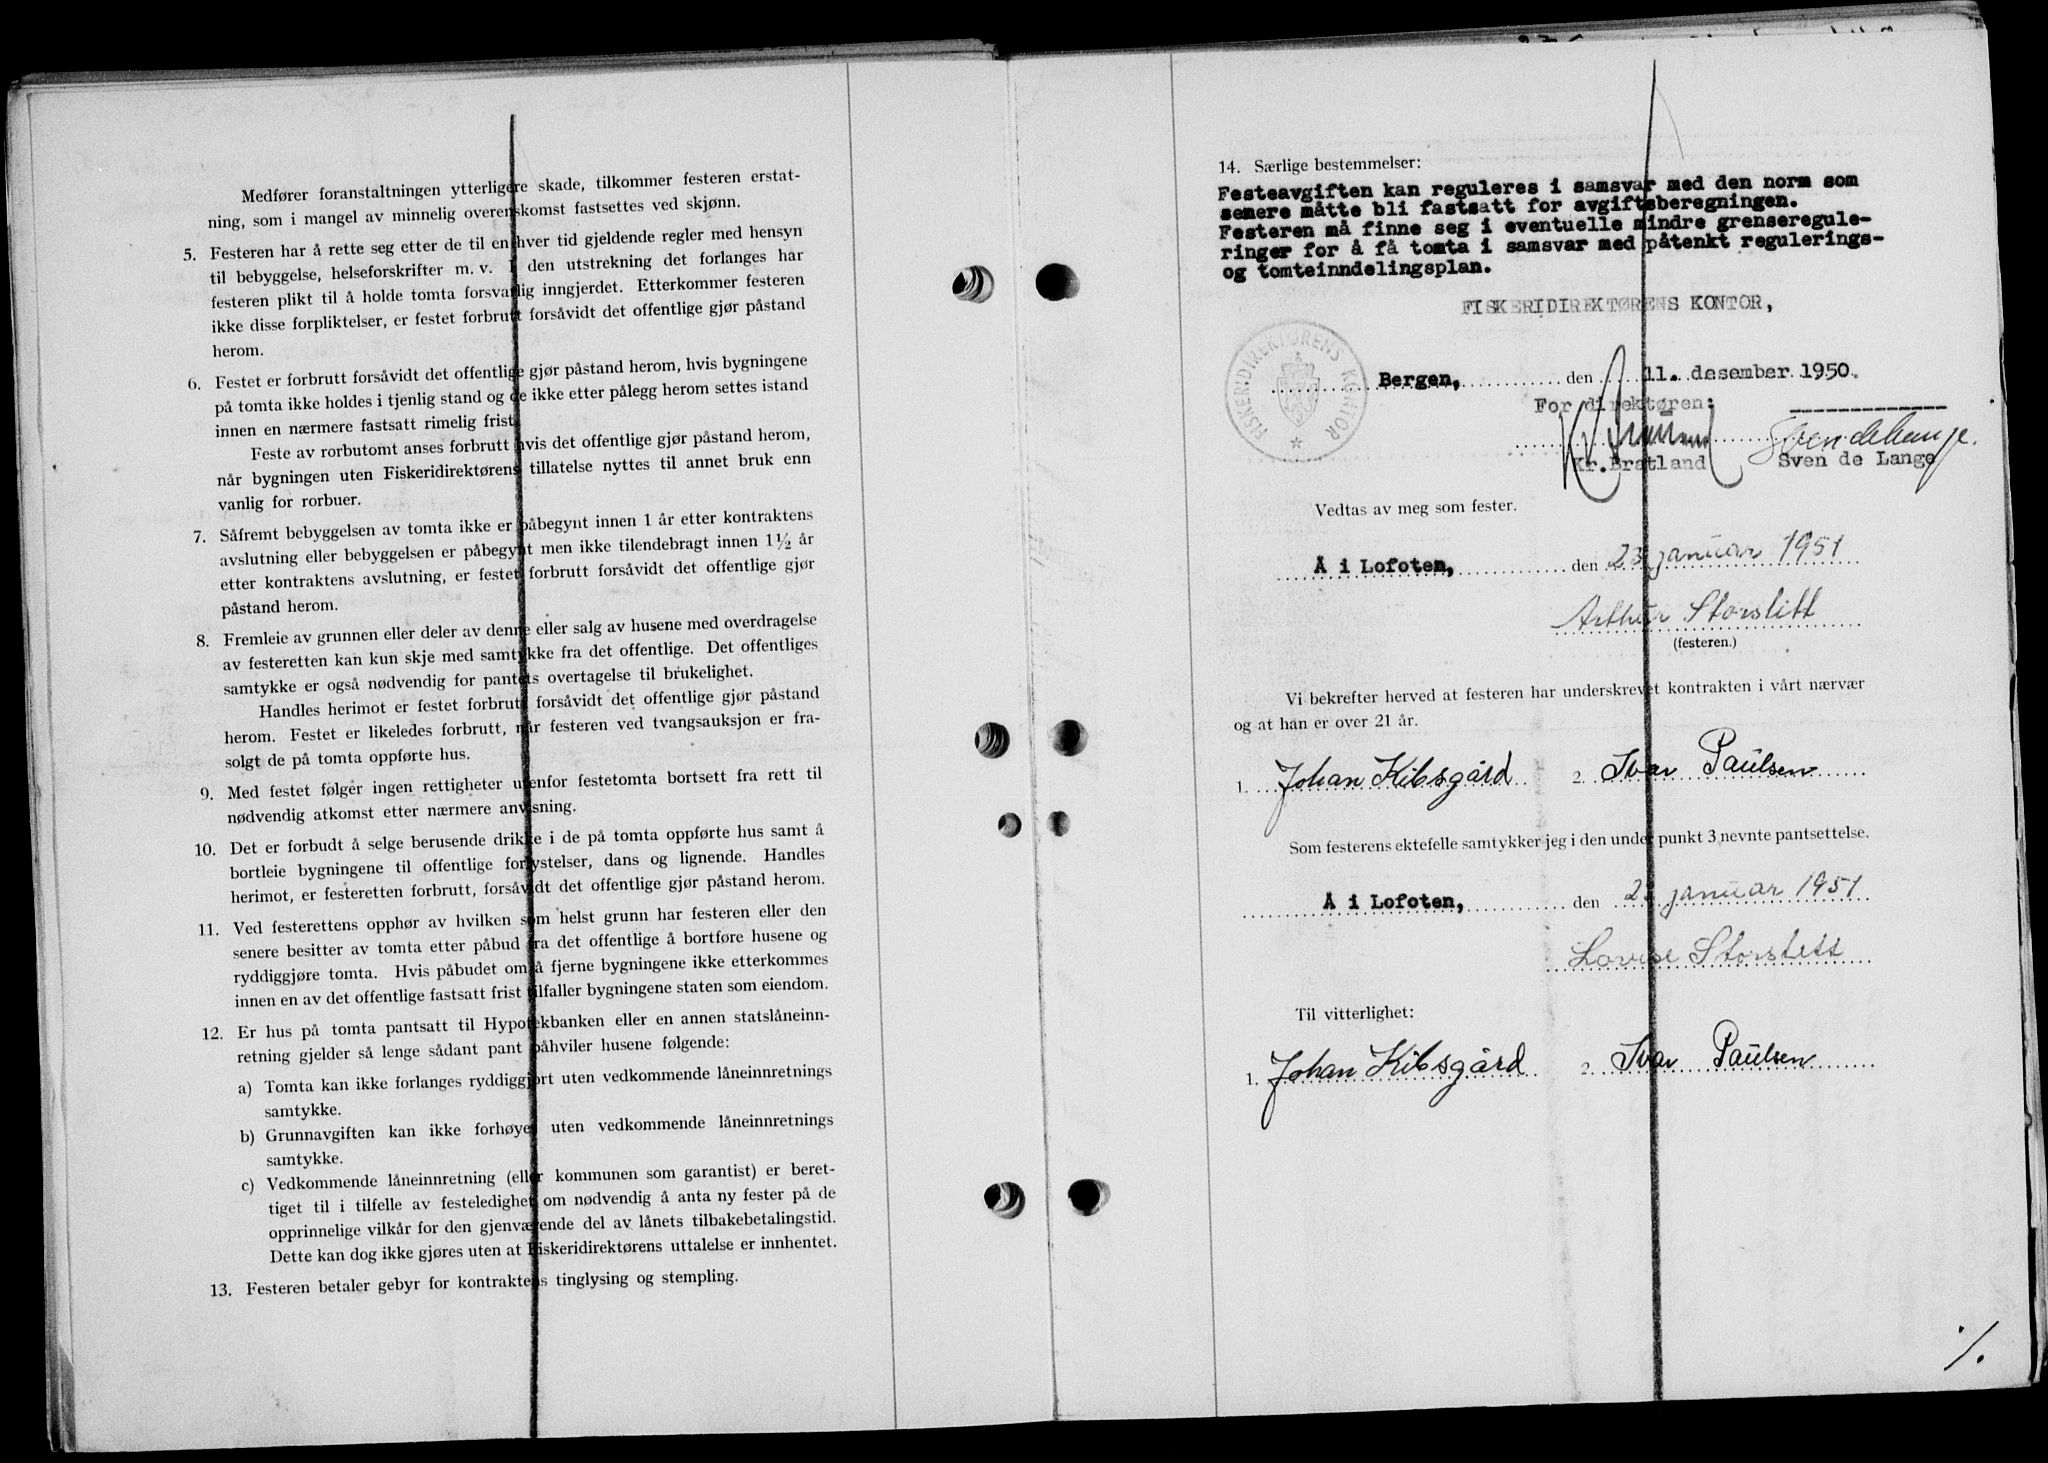 Medfører foranstaltningen ytterligere skade, tilkommer festeren erstat-
ning, som i mangel av minnelig overenskomst fastsettes ved skjønn.
5. Festeren har å rette seg etter de til enhver tid gjeldende regler med hensyn
til bebyggelse, helseforskrifter m. v. I den utstrekning det forlanges har
festeren plikt til å holde tomta forsvarlig inngjerdet. Etterkommer festeren
ikke disse forpliktelser, er festet forbrutt forsåvidt det offentlige gjør påstand
herom.
6. Festet er forbrutt forsåvidt det offentlige gjør påstand herom, hvis bygningene
på tomta ikke holdes i tjenlig stand og de ikke etter pålegg herom settes istand
innen en nærmere fastsatt rimelig frist.
Feste av rorbutomt anses forbrutt hvis det offentlige gjør påstand herom,
når bygningen uten Fiskeridirektørens tillatelse nyttes til annet bruk enn
vanlig for rorbuer.
7. Såfremt bebyggelsen av tomta ikke er påbegynt innen 1 år etter kontraktens
avslutning eller bebyggelsen er påbegynt men ikke tilendebragt innen 1½ år
etter kontraktens avslutning, er festet forbrutt forsåvidt det offentlige gjør
påstand herom.
8. Fremleie av grunnen eller deler av denne eller salg av husene med overdragelse
av festeretten kan kun skje med samtykke fra det offentlige. Det offentliges
samtykke er også nødvendig for pantets overtagelse til brukelighet.
Handles herimot er festet forbrutt forsåvidt det offentlige gjør påstand
herom. Festet er likeledes forbrutt, når festeren ved tvangsauksjon er fra-
solgt de på tomta oppførte hus.
9. Med festet følger ingen rettigheter utenfor festetomta bortsett fra rett til
nødvendig atkomst etter nærmere anvisning.
10. Det er forbudt å selge berusende drikke i de på tomta oppførte hus samt å
bortleie bygningene til offentlige forlystelser, dans og lignende. Handles
herimot, er festeretten forbrutt, forsåvidt det offentlige gjør påstand herom.
11. Ved festerettens opphør av hvilken som helst grunn har festeren eller den
senere besitter av tomta etter påbud fra det offentlige å bortføre husene og
ryddiggjøre tomta. Hvis påbudet om å fjerne bygningene ikke etterkommes
innen en av det offentlige fastsatt frist tilfaller bygningene staten som eiendom.
12. Er hus på tomta pantsatt til Hypotekbanken eller en annen statslåneinn-
retning gjelder så lenge sådant pant påhviler husene følgende:
a) Tomta kan ikke forlanges ryddiggjort uten vedkommende låneinnretnings
samtykke.
b) Grunnavgiften kan ikke forhøyes uten vedkommende låneinnretnings
samtykke.
c) Vedkommende låneinnretning (eller kommunen som garantist) er beret-
tiget til i tilfelle av festeledighet om nødvendig å anta ny fester på de
opprinnelige vilkår for den gjenværende del av lånets tilbakebetalingstid.
Dette kan dog ikke gjøres uten at Fiskeridirektørens uttalelse er innhentet.
13. Festeren betaler gebyr for kontraktens tinglysing og stempling.
14. Særlige bestemmelser:
Festeavgiften kan reguleres i samsvar med den norm som
senere måtte bli fastsatt for avgiftsberegningen.
Festeren må finne seg i eventuelle mindre grenseregule-
ringer for å få tomta i samsvar med påtenkt regulerings-
og tomteinndelingsplan.
FISKERIDIREKTØRENS KONTOR,
FISKERIDIREKTØRENS KONTOR
Bergen, den 11. desember 1950.
For direktøren:
Sven de Lange.
Kr. Bratland Sven de Lange
Vedtas av meg som fester.
Å i Lofoten, den 23 januar 1951
Arthur Storslett
(festeren.)
Vi bekrefter herved at festeren har underskrevet kontrakten i vårt nærvær
og at han er over 21 år.
1. Johan Kibsgård 2. Ivar Paulsen
Som festerens ektefelle samtykker jeg i den under punkt 3 nevnte pantsettelse.
Å i Lofoten, den 23 januar 1951
Lovise Storslett
Til vitterlighet:
1. Johan Kibsgård 2. Ivar Paulsen
./.